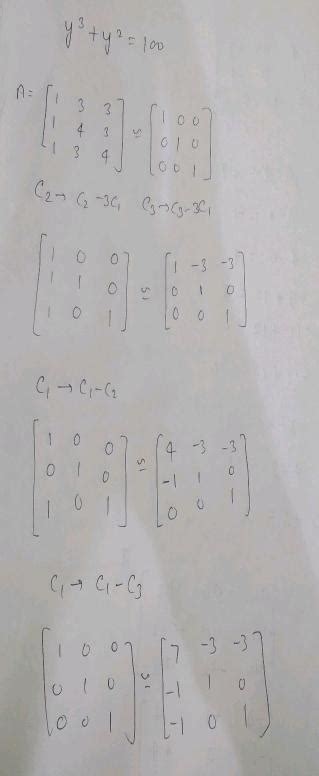 y³+y²=100
A= [1 3 3; 1 4 3; 1 3 4] ≅ [1 0 0; 0 1 0; 0 0 1]
C₂→ C₂-3C₁ C₃→C₃-3C₁
[1 0 0; 1 1 0; 1 0 1] ≅ [1 -3 -3; 0 1 0; 0 0 1]
C₁ → C₁-C₂
[1 0 0; 0 1 0; 1 0 1] ≅ [4 -3 -3; -1 1 0; 0 0 1]
C₁ → C₁-C₃
[1 0 0; 0 1 0; 0 0 1] ≅ [7 -3 -3; -1 1 0; -1 0 1]